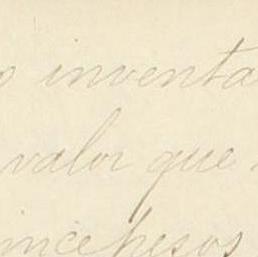 o inventa
valor que
incepesos